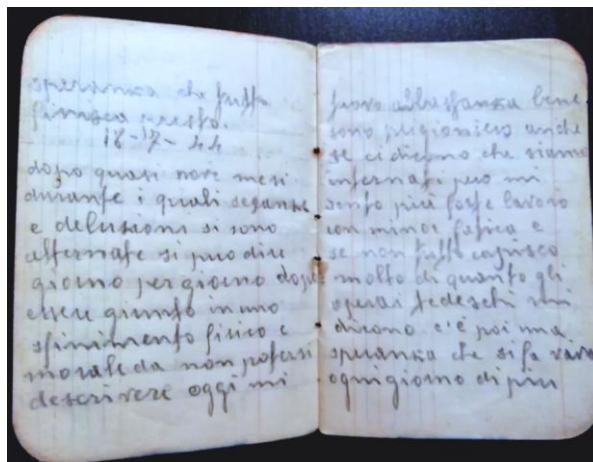 speranza che tutto
finisca presto.
18-17-44
dopo quasi nove mesi
durante i quali speranze
e delusioni si sono
alternate si puo dire
giorno per giorno dopo
essere giunto in uno
sfinimento fisico e
morale da non potersi
descrivere oggi mi
trovo abbastanza bene
sono prigioniero anche
se ci dicono che siamo
internati pero mi
sento piu forte lavoro
con minor fatica e
se non tutto capisco
molto di quanto gli
operai tedeschi mi
dicono c'è poi una
speranza che si fa viva
ogni giorno di piu